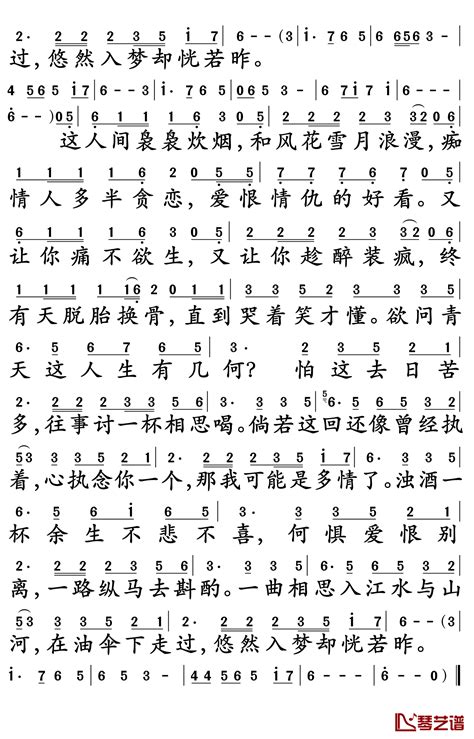 2· 2 2 2 3 5 i 7 6 - - (3 i · 7 6 5 6 656 3 -
过,悠然入梦却恍若昨。
4 565 i 7 6 - - 3 i · 7 6 5 065 3 - 6 7i7 5 - 6 - - -
6 - - ) 05 6 1 1 1 6 3 05 2 2 2 2 3 3 32 06
这人间袅袅炊烟,和风花雪月浪漫,痴
1 1 1 1 1 2 05 5 7 7 7 6 7 05
情人多半贪恋,爱恨情仇的好看。又
6 1 1 1 6 3 05 2 2 2 2 3 3 32 06
让你痛不欲生,又让你趁醉装疯,终
1 1 1 1 16 2 01 1 3 3 5 5 3 5 1
有天脱胎换骨,直到哭着笑才懂。欲问青
6· 5 6 7 6 5 3· 2 3 5 2 1
天这人生有几何? 怕这去日苦
2· 1 2 2 3 5 6 3· 3 3 3 5 6· 5 3 5 2 1
多,往事讨一杯相思喝。倘若这回还像曾经执
53 3 3 5 2 1 2· 2 2 2 3 5 i 7 6· 3 5 1
着,心执念你一个,那我可能是多情了。浊酒一
6· 5 6 i 6 5 3· 2 3 5 2 1
杯余生不悲不喜,何惧爱恨别
2· 1 2 2 3 5 6 3· 3 3 3 5 6 6 5 3 5 2 1
离,一路纵马去斟酌。一曲相思入江水与山
53 3 3 5 2 1 2· 2 2 2 3 5 i 7 6 - - (3
河,在油伞下走过,悠然入梦却恍若昨。
i · 7 6 5 6 5 3 - 4 4 5 6 5 i 7 6 - - - 6 - - 0 )
琴艺谱